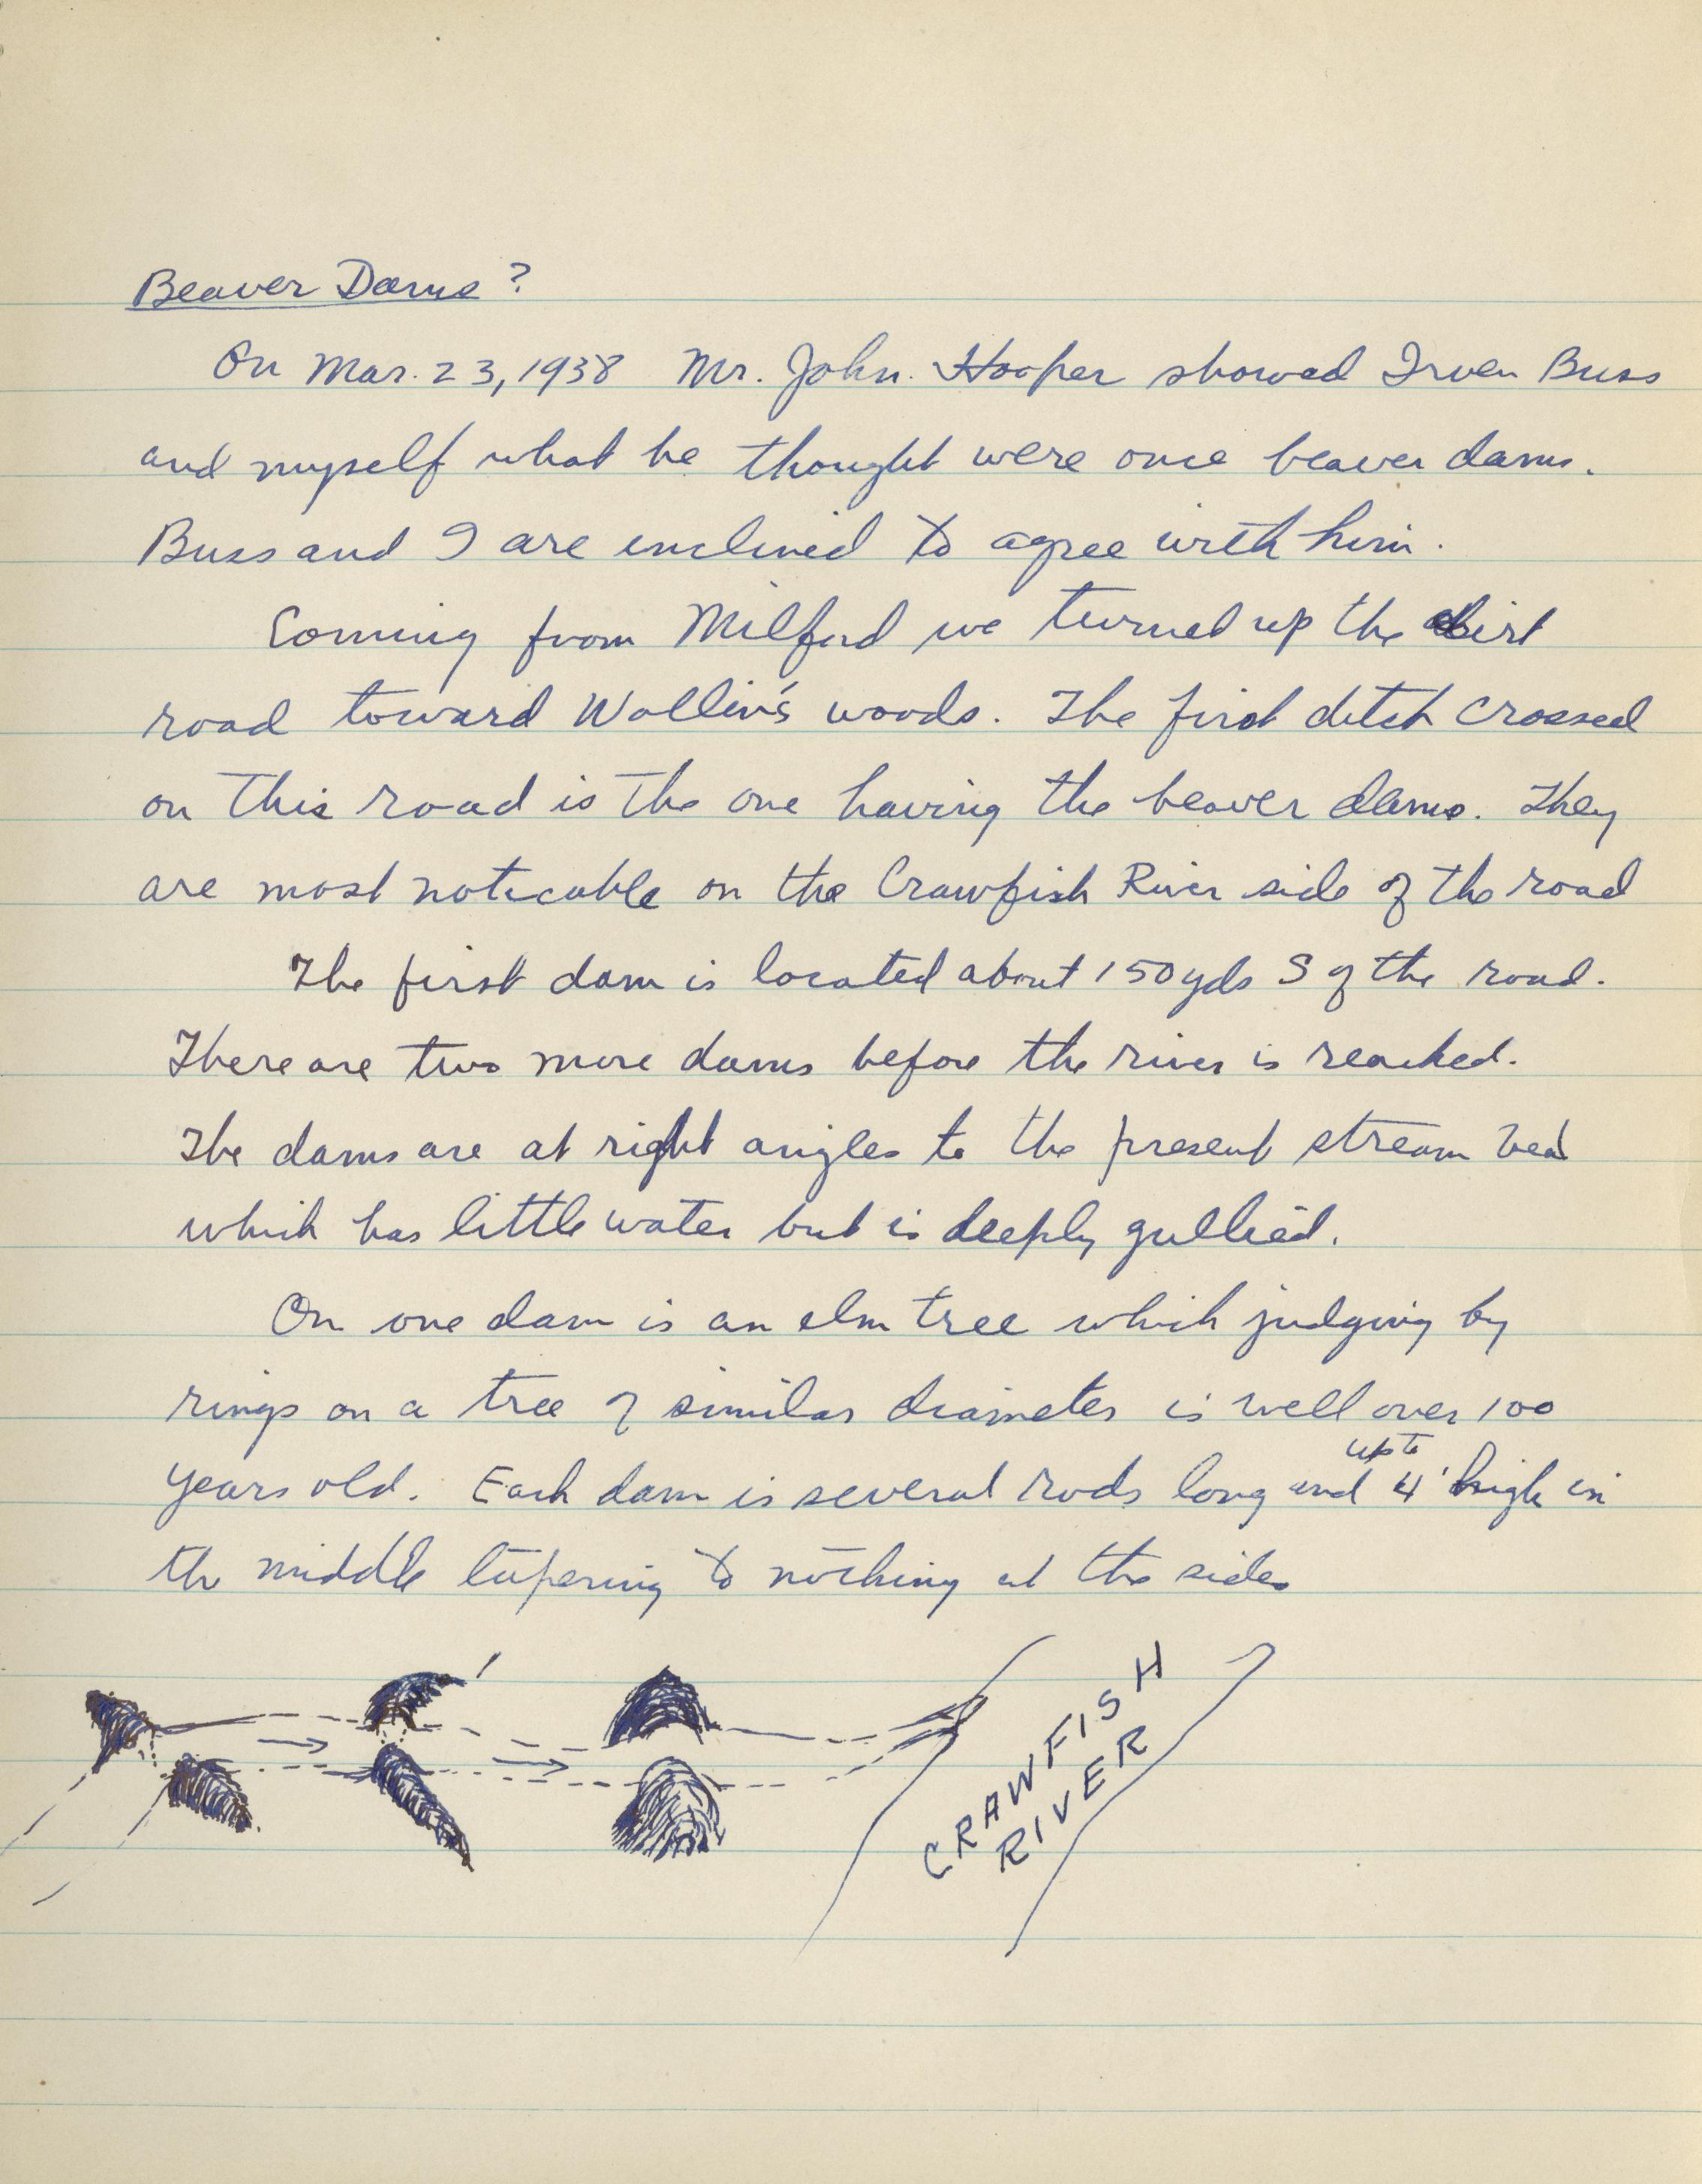 Beaver Dams?
On Mar. 23, 1938 Mr. John. Hooper showed Irven Buss
and myself what he thought were once beaver dams.
Buss and I are inclined to agree with him.
Coming from Milford we turned up the dirt
road toward Wollin's woods. The first ditch crossed
on this road is the one having the beaver dams. They
are most noticable on the Crawfish River side of the road
The first dam is located about 150 yds S of the road.
There are two more dams before the river is reached.
The dams are at right angles to the present stream bed
which has little water but is deeply gullied.
On one dam is an elm tree which judging by
rings on a tree of similar diameter is well over 100
years old. Each dam is several rods long and up to 4' high in
the middle tapering to nothing at the sides
CRAWFISH
RIVER